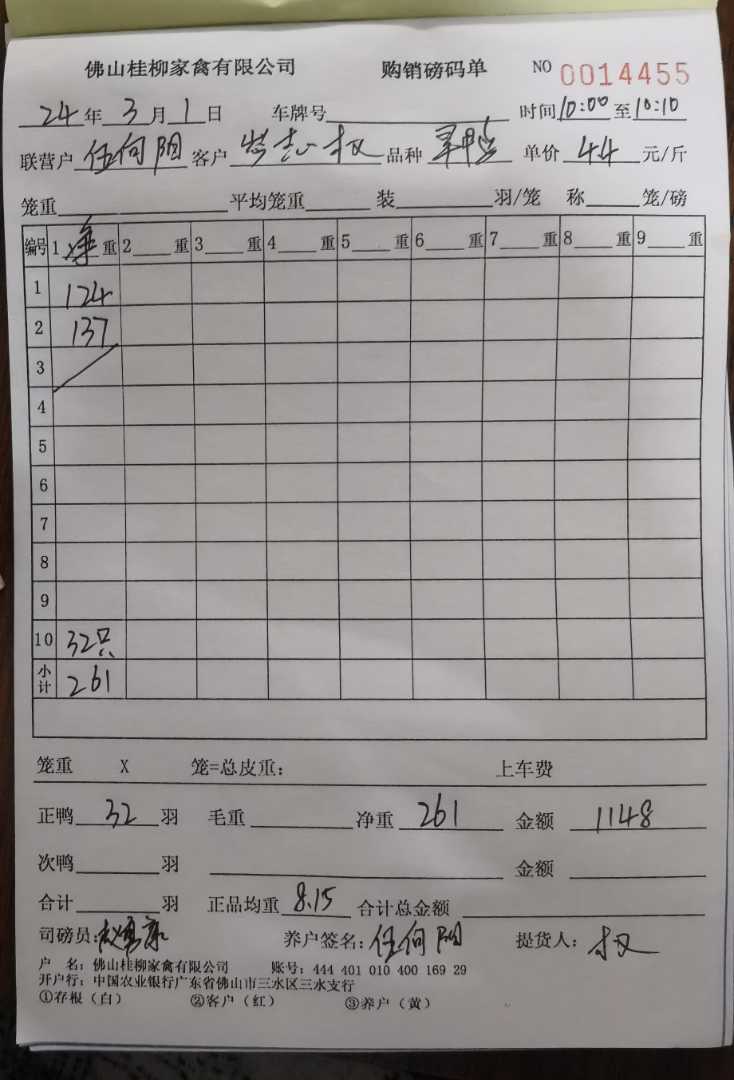 佛山桂柳家禽有限公司 购销磅码单 NO 0014455
24年3月1日 车牌号 时间10:00至10:10
联营户 伍何阳 客户 权 品种 单价 44 元/斤
笼重 平均笼重 装 羽/笼 称 笼/磅
编号 1 重 2 重 3 重 4 重 5 重 6 重 7 重 8 重 9 重
1 124
2 137
3
4
5
6
7
8
9
10 32只
小计 261
笼重 X 笼=总皮重： 上车费
正鸭 32 羽 毛重 净重 261 金额 1148
次鸭 羽 金额
合计 羽 正品均重 8.15 合计总金额
司磅员： 养户签名：伍何阳 提货人：权
户 名：佛山桂柳家禽有限公司 账号：444 401 010 400 169 29
开户行：中国农业银行广东省佛山市三水区三水支行
①存根（白） ②客户（红） ③养户（黄）